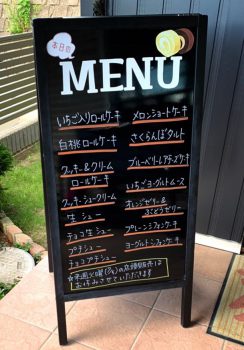 本日の
MENU
いちご入りロールケーキ
白桃ロールケーキ
クッキー&クリーム
ロールケーキ
クッキーシュークリーム
生シュー
チョコ生シュー
プチシュー
チョコプチシュー
メロンショートケーキ
さくらんぼタルト
ブルーベリーレアチーズケーキ
いちごヨーグルトムース
オレンジゼリー&
ぶどうゼリー
プレーンシフォンケーキ
ヨーグルトシフォンケーキ
☆来週火曜の店頭販売は
お休みさせていただきます